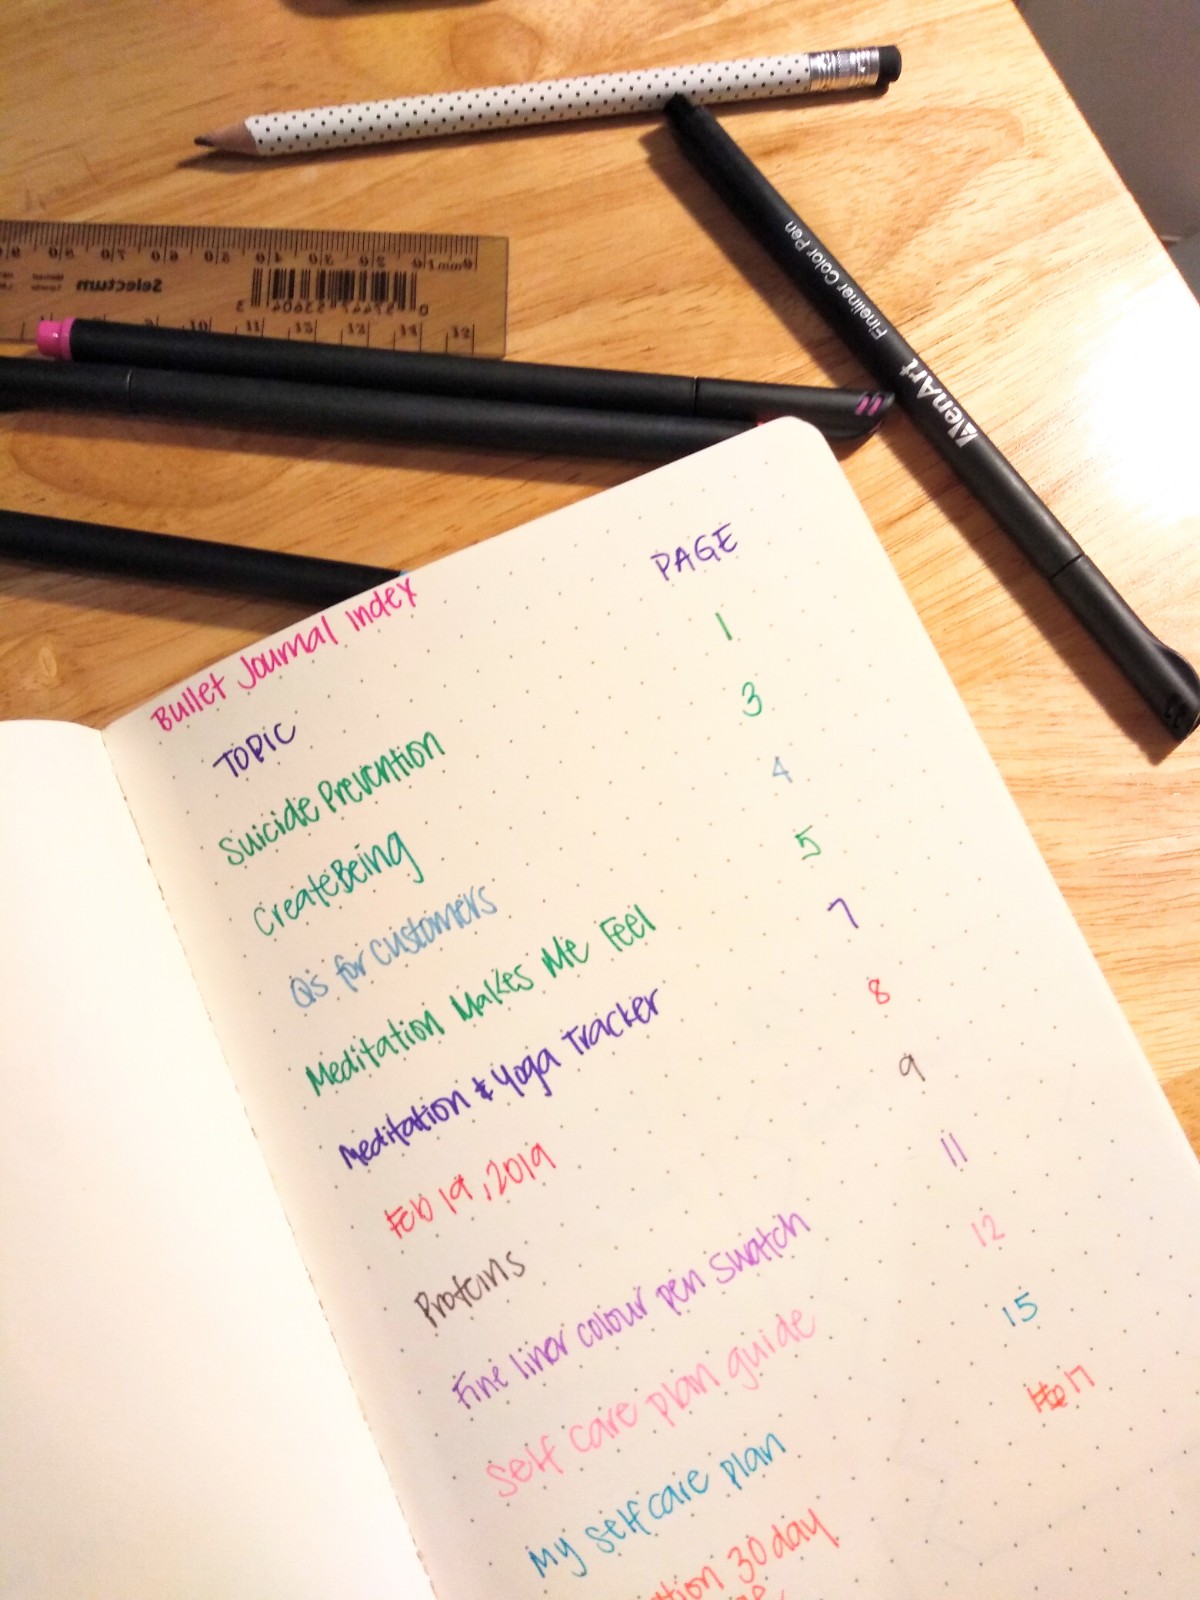 Fineliner Color Pen
AenArt
Selectum
0mm1 20 30 40 50 60 70 80 90
0 37447 33604 3
10 11 12 13 14 15
Bullet Journal Index
TOPIC PAGE
Suicide Prevention 1
CreateBeing 3
Qs for customers 4
Meditation Makes Me Feel 5
Meditation & Yoga Tracker 7
Feb 19, 2019 8
Proteins 9
Fine liner colour pen swatch 11
Self care plan guide 12
My selfcare plan 15
30 day 17